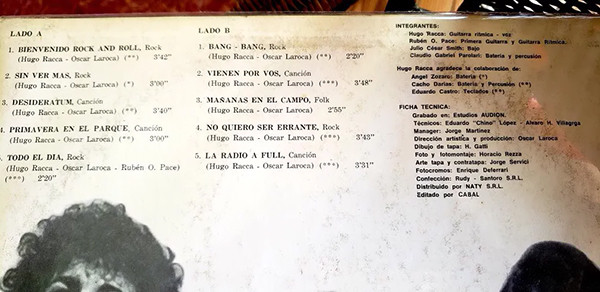 LADO A
1. BIENVENIDO ROCK AND ROLL, Rock
(Hugo Racca - Oscar Laroca) (**) 3'42"
2. SIN VER MAS, Rock
(Hugo Racca - Oscar Laroca) (*) 3'00"
3. DESIDERATUM, Canción
(Hugo Racca - Oscar Laroca) (**) 3'40"
4. PRIMAVERA EN EL PARQUE, Canción
(Hugo Racca - Oscar Laroca) (**) 3'00"
5. TODO EL DIA, Rock
(Hugo Racca - Oscar Laroca - Rubén O. Pace)
(***) 2'20"
LADO B
1. BANG - BANG, Rock
(Hugo Racca - Oscar Laroca) (**) 2'20"
2. VIENEN POR VOS, Canción
(Hugo Racca - Oscar Laroca) (***) 3'48"
3. MAÑANAS EN EL CAMPO, Folk
(Hugo Racca - Oscar Laroca) 2'55"
4. NO QUIERO SER ERRANTE, Rock
(Hugo Racca - Oscar Laroca) (***) 3'45"
5. LA RADIO A FULL, Canción
(Hugo Racca - Oscar Laroca) (***) 3'31"
INTEGRANTES:
Hugo Racca: Guitarra rítmica - voz
Rubén O. Pace: Primera Guitarra y Guitarra Rítmica.
Julio César Smith: Bajo
Claudio Gabriel Parolari: Batería y percusión
Hugo Racca agradece la colaboración de:
Angel Zozaro: Batería (*)
Cacho Darias: Batería y Percusión (**)
Eduardo Castro: Teclados (**)
FICHA TECNICA:
Grabado en: Estudios AUDION.
Técnicos: Eduardo "Chino" López - Alvaro H. Villagrga
Manager: Jorge Martínez
Dirección artística y producción: Oscar Laroca
Dibujo de tapa: H. Gatti
Foto y fotomontaje: Horacio Rezza
Arte tapa y contratapa: Jorge Servici
Fotocromos: Enrique Deferrari
Confección: Rudy - Santoro S.R.L.
Distribuido por NATY S.R.L.
Editado por CABAL